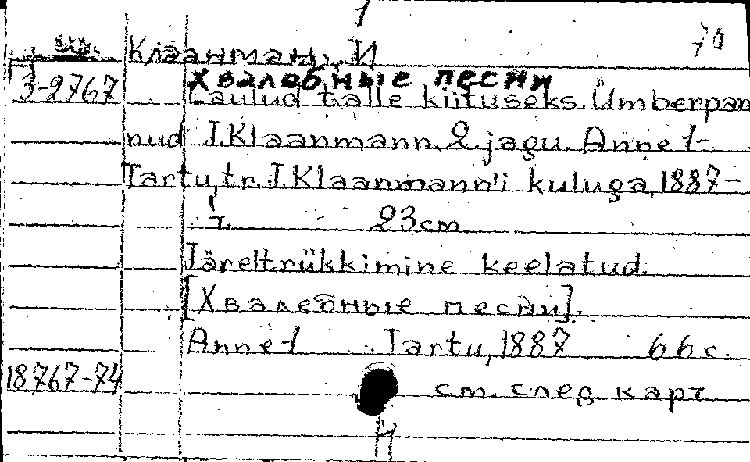 1
70
Клаанман, И
З-2767
Хвалебные песни
Laulud talle kiituseks. Ümberpan
nud J.Klaanmann. 2 jagu. Anne 1-
Tartu, tr. J.Klaanmann'i kuluga, 1887-
23cm
Järeltrükkimine keelatud.
[Хвалебные песни].
Anne 1 Tartu, 1887 66 с.
18767-74
см. след карт